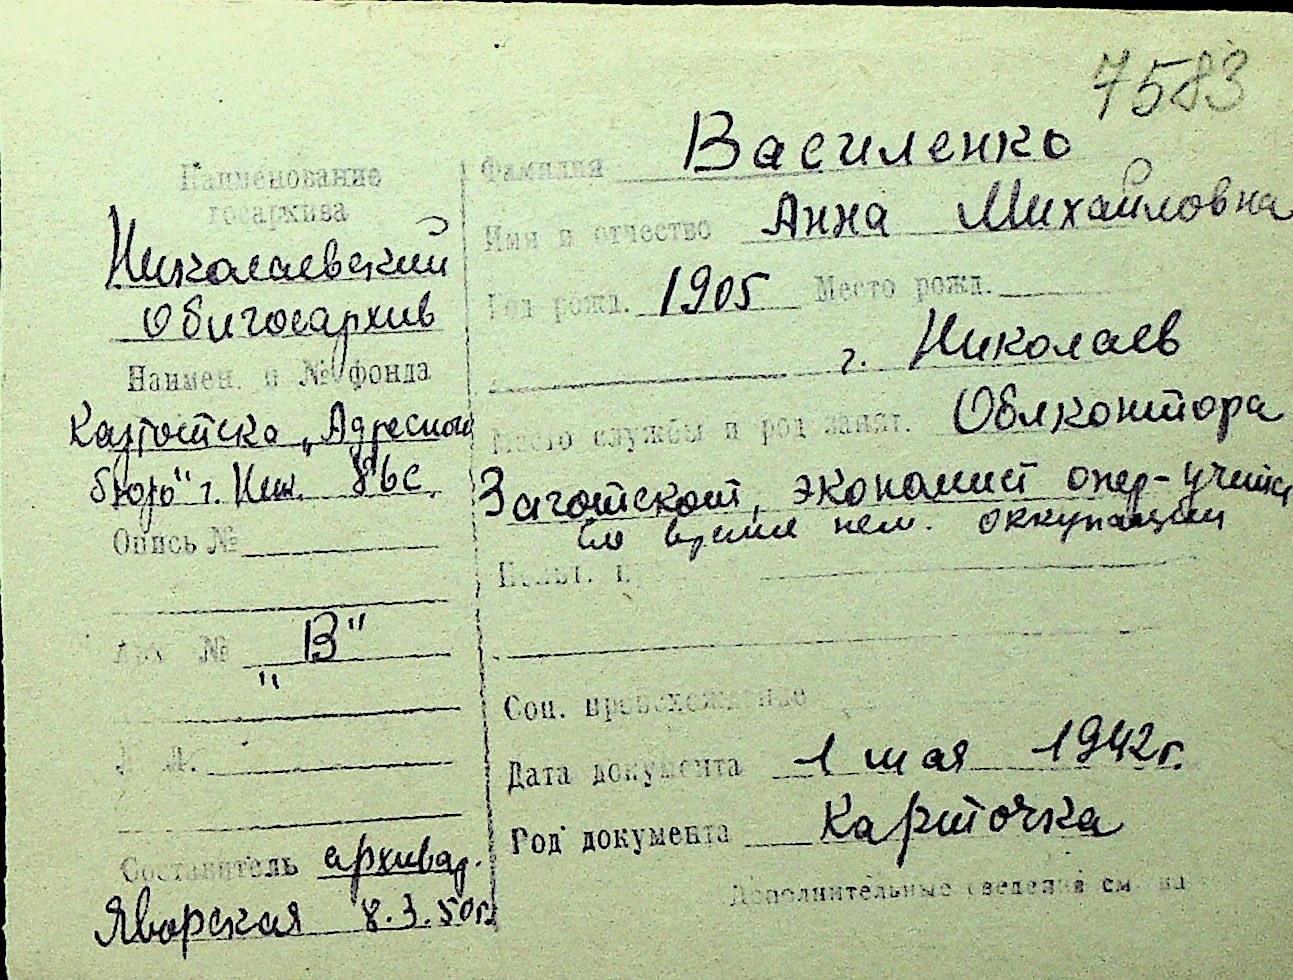 7583
Наименование
госархива
Николаевский
Облгосархив
Наимен. и № фонда
Картотека „Адресного
бюро" г. Ник.
Опись №
Арх. № „В"
Л. Л.
Составитель архивар.
Яворская 8.3.50г.
Фамилия Василенко
Имя и отчество Анна Михайловна
Год рожд. 1905 Место рожд.
г. Николаев
Место службы и род занят. Облконтора
Заготскот, экономист опер-учетн
во время нем. оккупации
Соц. происхождение
Дата документа 1 мая 1942г.
Род документа Карточка
Дополнительные сведения см. на